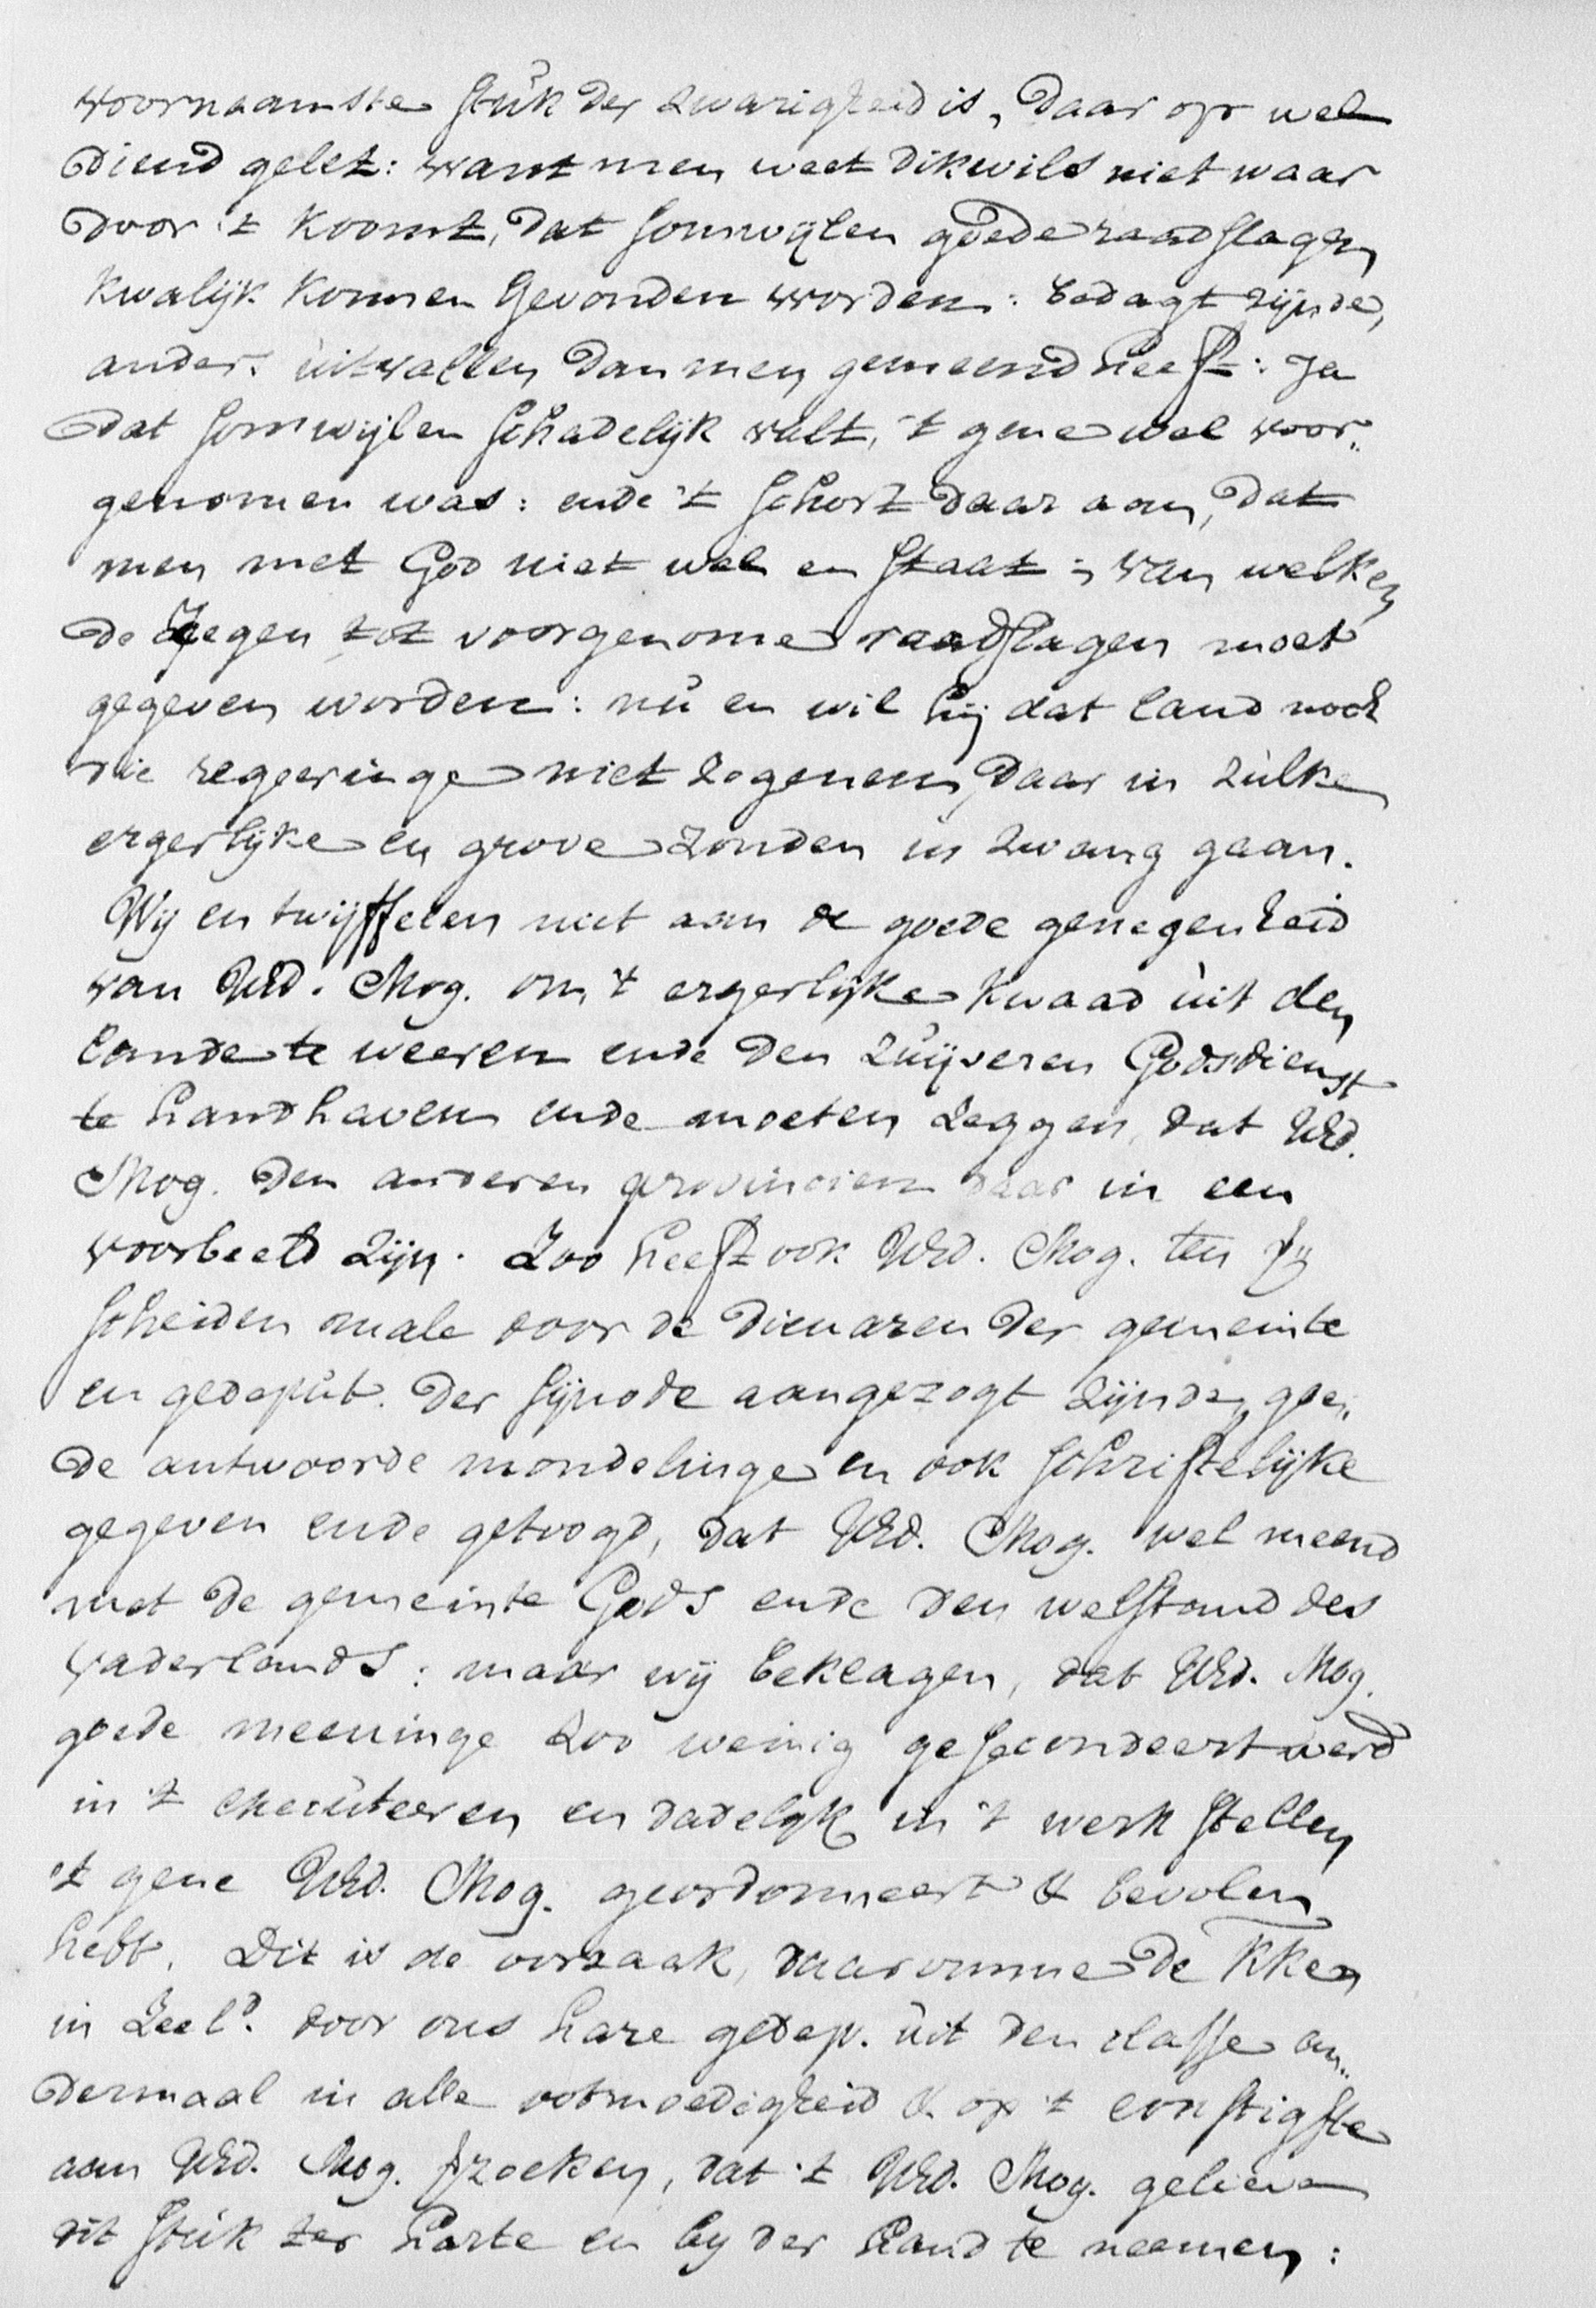 voornaamste stuk der zwarigheid is, daar op wel
diend gelet: want men weet dikwils niet waar
door 't koomt, dat somwijlen goede raadslagen
kwalijk konnen gevonden worden: bedagt zijnde,
anders uitvallen dan men gemeend heeft: Ja
dat somwijlen schadelijk valt, 't gene wel voor„
genomen was: ende 't schort daar aan, dat
men met God niet wel en staat; van welken
de Zegen tot voorgenome raadslagen moet
gegeven worden: nu en wil hij dat land noch
die regeeringe niet zegenen, daar in zulke
ergerlijke en grove zonden in zwang gaan.
Wij en twijffelen niet aan de goede genegenheid
van UEd. Mog. om 't ergerlijke kwaad uit den
lande te weeren ende den zuijveren Godsdienst
te handhaven ende moeten zeggen, dat UEd.
Mog. den anderen provincien daar in een
voorbeeld zijn. Zoo heeft ook UEd. Mog. ten
scheiden male door de dienaren der gemeinte
en gedeput. der sijnode aangezogt zijnde, goe„
de antwoorde mondelinge en ook schriftelijke
gegeven ende getoogd, dat UEd. Mog. wel meend
met de gemeinte Gods ende den welstand des
vaderlands: maar wij beklagen, dat UEd. Mog.
goede meeninge zoo weinig gesecondeert werd
in 't executeeren en dadelijk in 't werk stellen
't gene UEd. Mog. geordonneert & bevolen
hebt. Dit is de oorzaak, daaromme de kken
in Zeeld. door ons hare gedep. uit den classe an„
dermaal in alle ootmoedigheid & op 't ernstigste
aan UEd. Mog. zoeken, dat 't UEd. Mog. gelieve
dit stuk ter harte en by der hand te neemen: